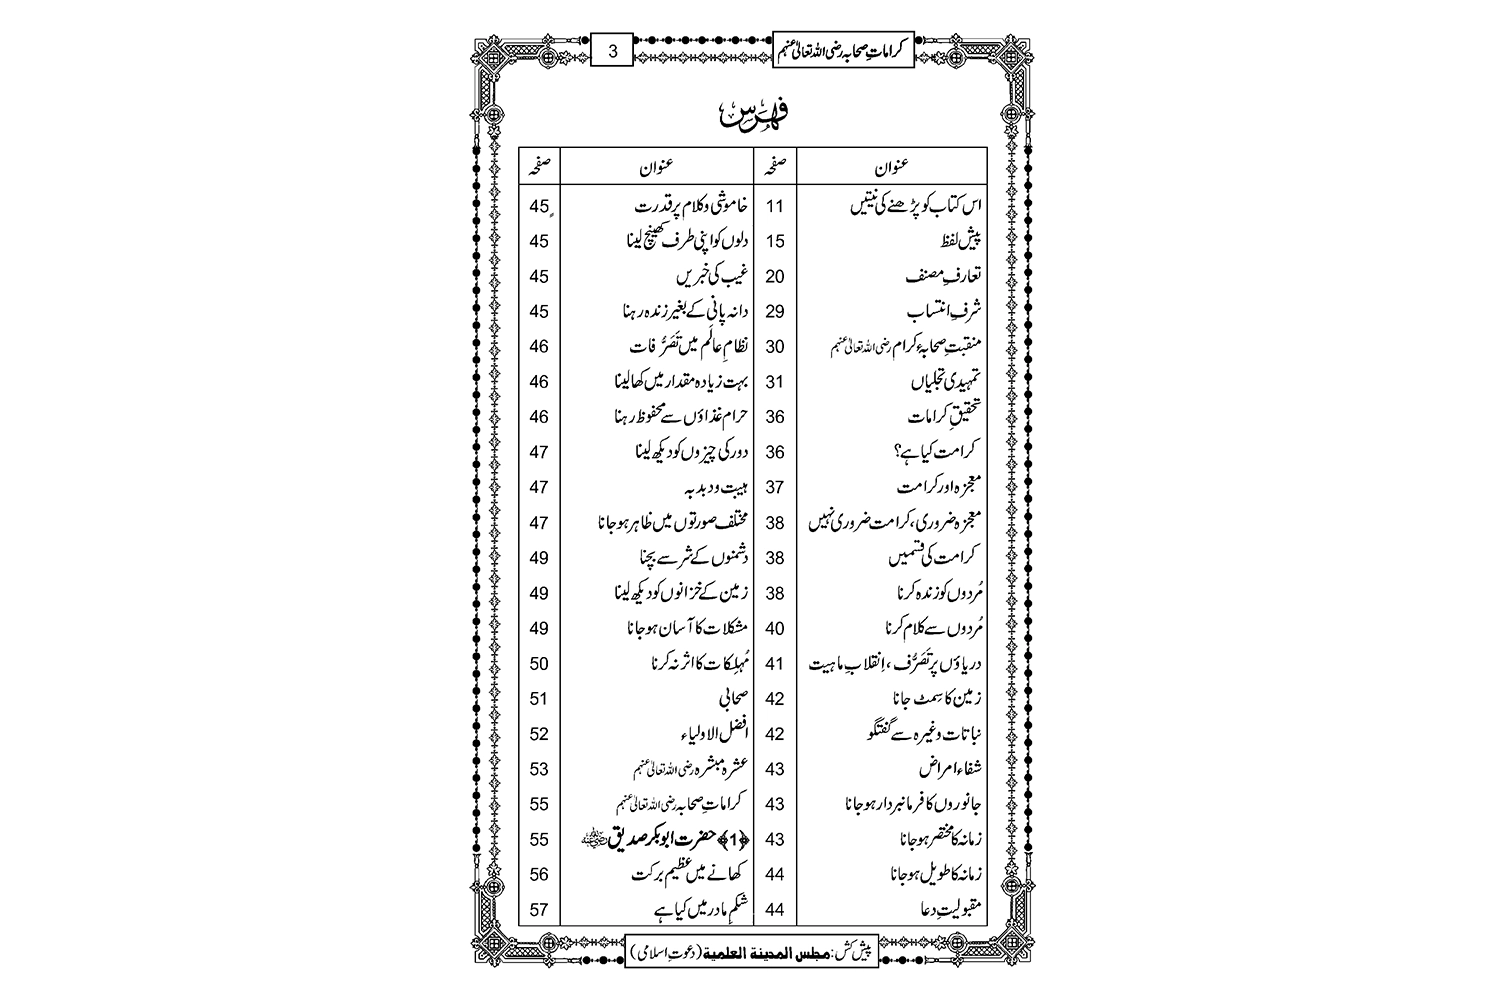 کراماتِ صحابہ رضی اللہ تعالیٰ عنہم 3
فہرس
عنوان صفحہ عنوان صفحہ
اس کتاب کو پڑھنے کی نیتیں 11 خاموشی و کلام پر قدرت 45
پیش لفظ 15 دلوں کو اپنی طرف کھینچ لینا 45
تعارفِ مصنف 20 غیب کی خبریں 45
شرفِ انتساب 29 دانہ پانی کے بغیر زندہ رہنا 45
منقبتِ صحابۂ کرام رضی اللہ تعالیٰ عنہم 30 نظامِ عالَم میں تَصَرُّفات 46
تمہیدی تجلیاں 31 بہت زیادہ مقدار میں کھالینا 46
تحقیقِ کرامات 36 حرام غذاؤں سے محفوظ رہنا 46
کرامت کیا ہے؟ 36 دور کی چیزوں کو دیکھ لینا 47
معجزہ اور کرامت 37 ہیبت و دبدبہ 47
معجزہ ضروری، کرامت ضروری نہیں 38 مختلف صورتوں میں ظاہر ہوجانا 47
کرامت کی قسمیں 38 دشمنوں کے شر سے بچنا 49
مُردوں کو زندہ کرنا 38 زمین کے خزانوں کو دیکھ لینا 49
مُردوں سے کلام کرنا 40 مشکلات کا آسان ہوجانا 49
دریاؤں پر تَصَرُّف ، اِنقلابِ ماہیت 41 مُہلِکات کا اثر نہ کرنا 50
زمین کا سِمٹ جانا 42 صحابی 51
نباتات وغیرہ سے گفتگو 42 افضل الاولیاء 52
شفاء امراض 43 عشرہ مبشرہ رضی اللہ تعالیٰ عنہم 53
جانوروں کا فرمانبردار ہوجانا 43 کراماتِ صحابہ رضی اللہ تعالیٰ عنہم 55
زمانہ کا مختصر ہوجانا 43 ﴿1﴾ حضرت ابوبکر صدیق 55
زمانہ کا طویل ہوجانا 44 کھانے میں عظیم برکت 56
مقبولیتِ دعا 44 شکمِ مادر میں کیا ہے 57
پیش کش: مجلس المدینة العلمیة (دعوتِ اسلامی)